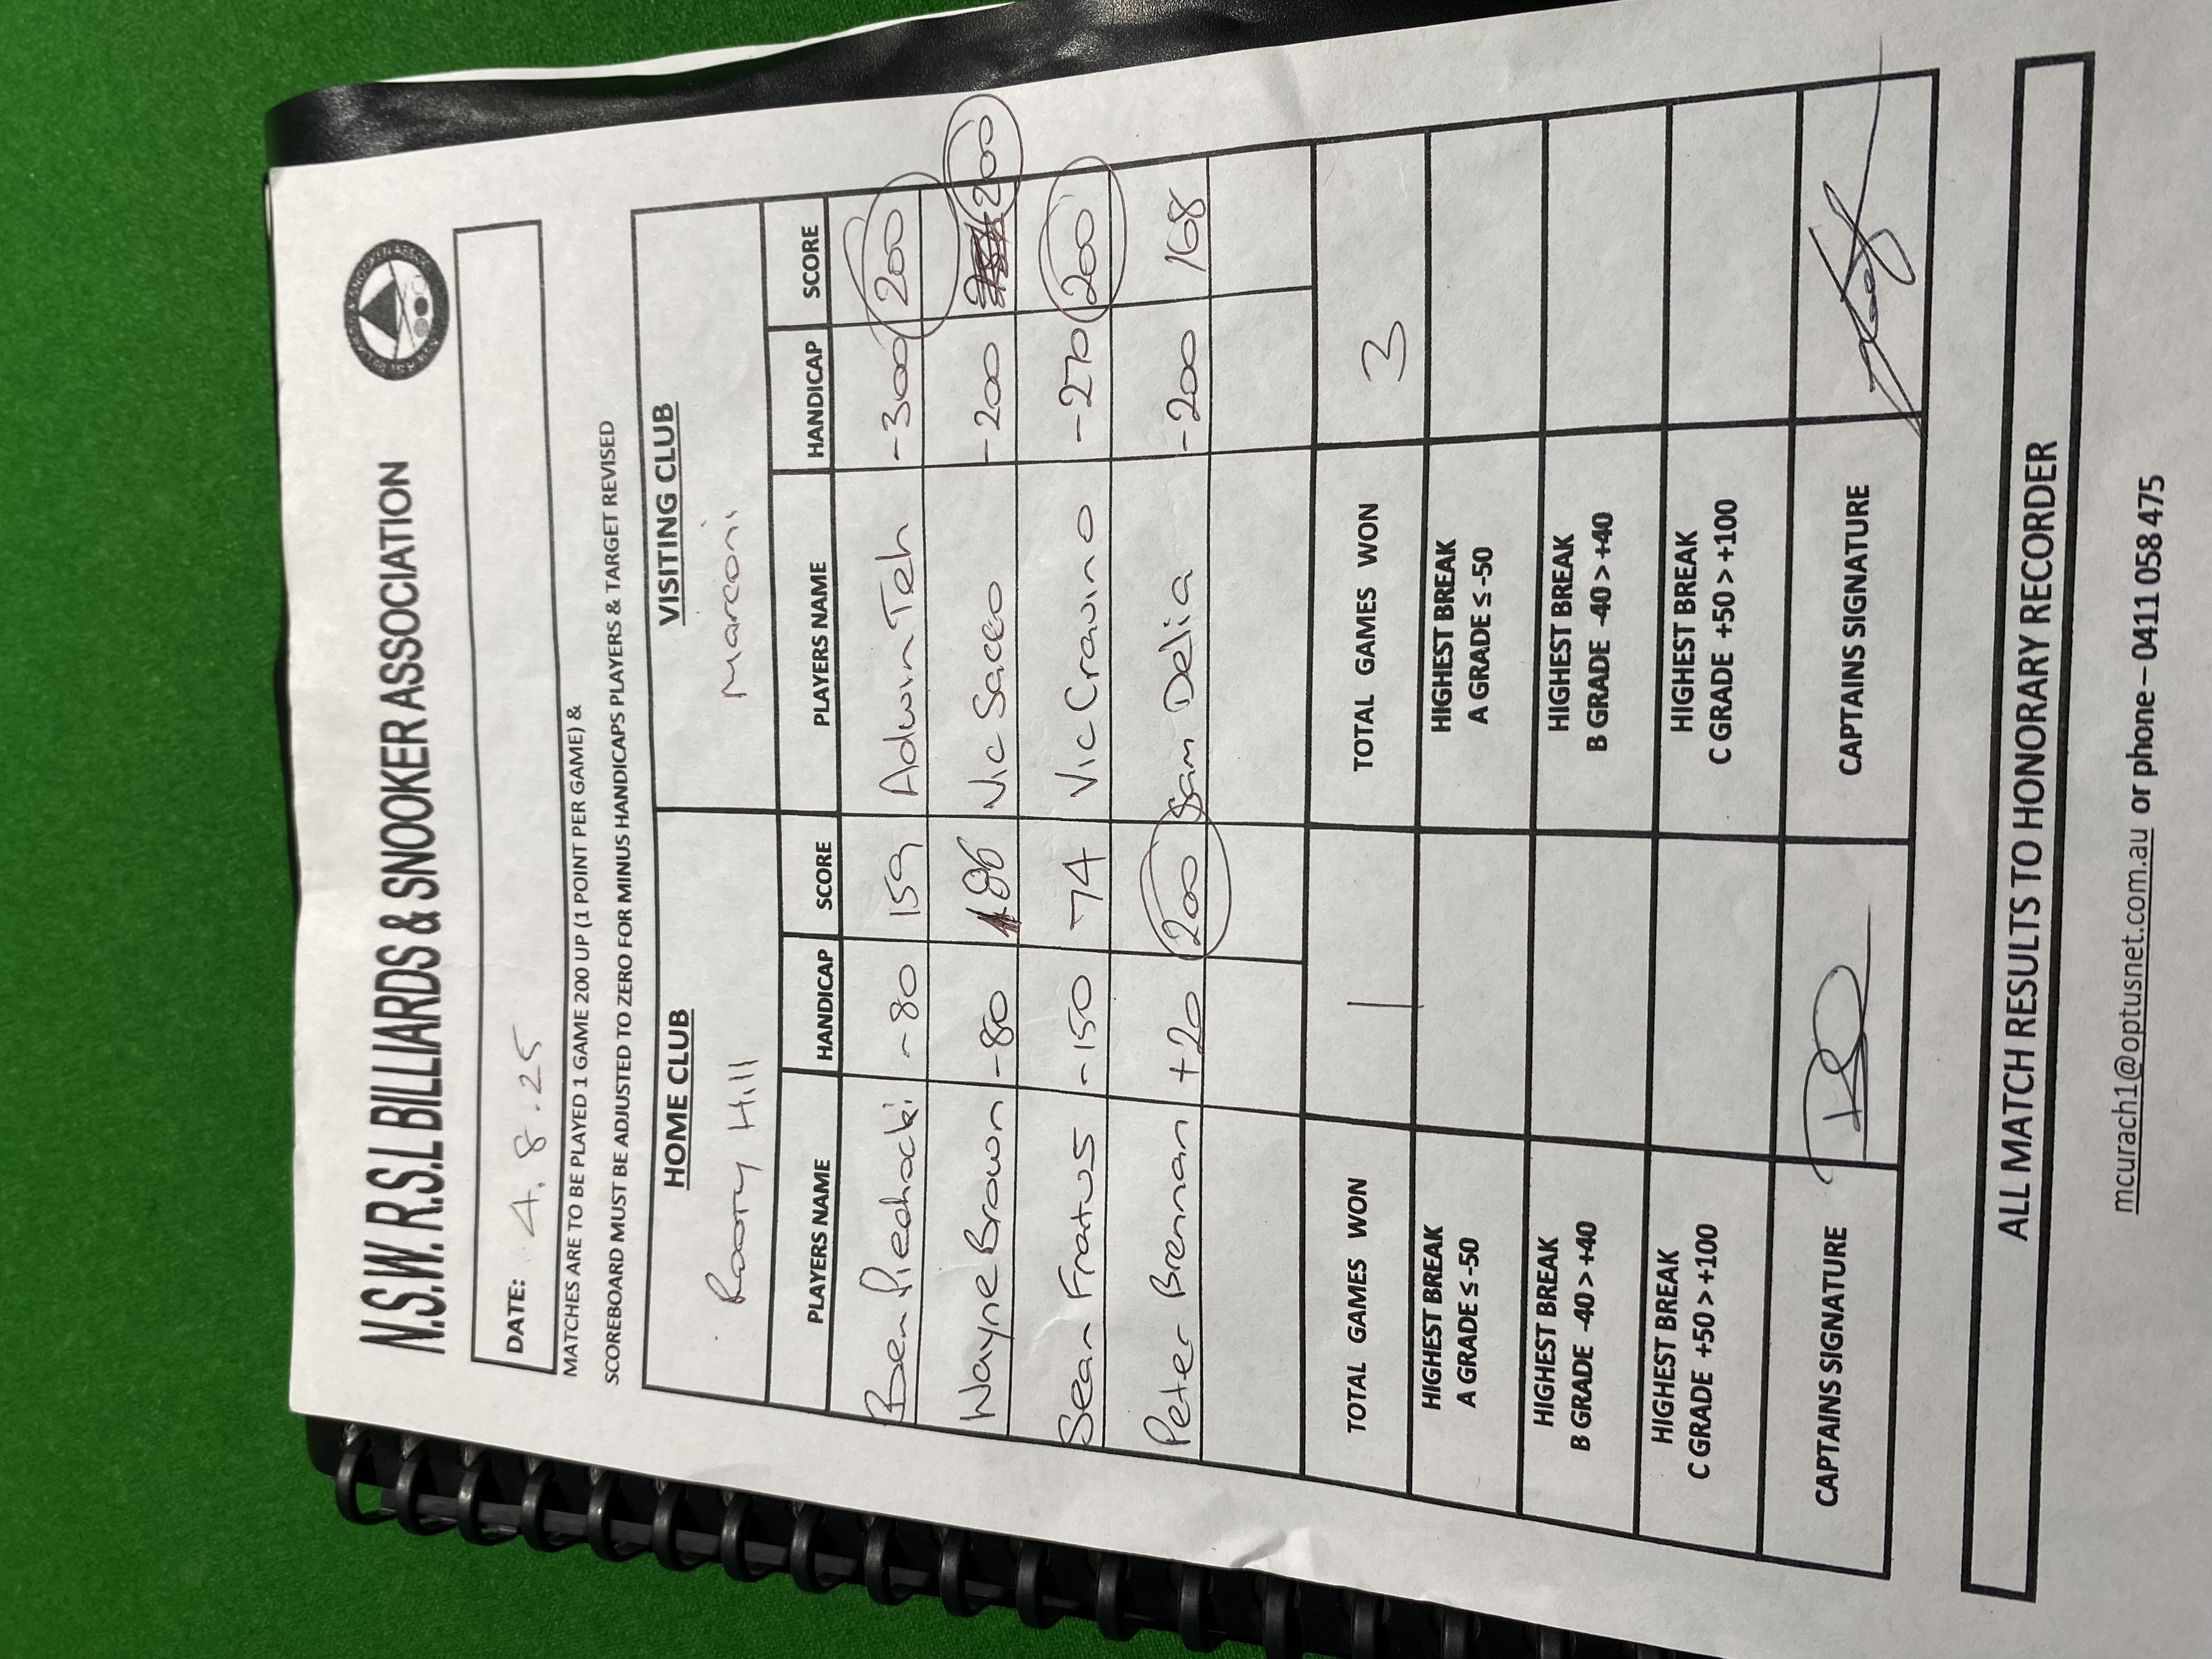 N.S.W. R.S.L BILLIARDS & SNOOKER ASSOCIATION
DATE: 4.8.25
MATCHES ARE TO BE PLAYED 1 GAME 200 UP (1 POINT PER GAME) &
SCOREBOARD MUST BE ADJUSTED TO ZERO FOR MINUS HANDICAPS PLAYERS & TARGET REVISED
HOME CLUB VISITING CLUB
Rooty Hill Marconi
PLAYERS NAME HANDICAP SCORE PLAYERS NAME HANDICAP SCORE
Ben Piechocki -80 159 Adwin Teh -300 200
Wayne Brown -80 186 Vic Sacco -200 200
Sean Fratus -150 74 Vic Cravino -270 200
Peter Brennan +20 200 Sam Delia -200 168
TOTAL GAMES WON 1 TOTAL GAMES WON 3
HIGHEST BREAK HIGHEST BREAK
A GRADE ≤ -50 A GRADE ≤ -50
HIGHEST BREAK HIGHEST BREAK
B GRADE -40 > +40 B GRADE -40 > +40
HIGHEST BREAK HIGHEST BREAK
C GRADE +50 > +100 C GRADE +50 > +100
CAPTAINS SIGNATURE CAPTAINS SIGNATURE
ALL MATCH RESULTS TO HONORARY RECORDER
mcurach1@optusnet.com.au or phone – 0411 058 475